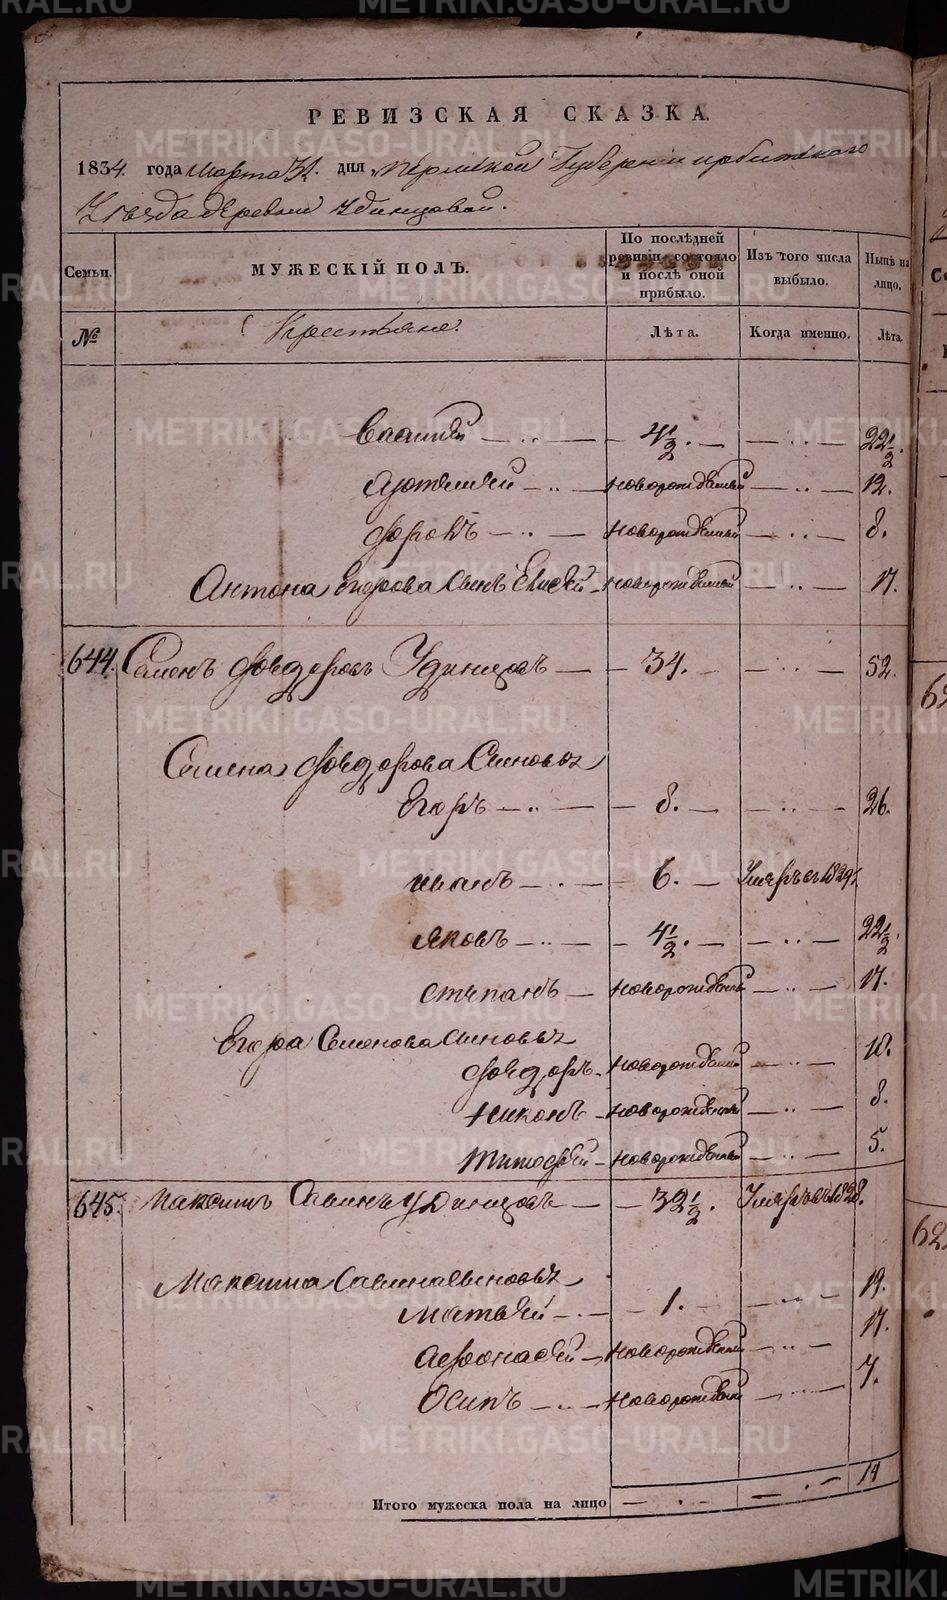 РЕВИЗСКАЯ СКАЗКА.
1834 года Марта 31. дня Пермской Губернии ирбитскаго
Уезда деревни Удинцовой.
Семьи.
МУЖЕСКІЙ ПОЛЪ.
По послѣдней ревизіи состояло и послѣ оной прибыло.
Изъ того числа выбыло.
Нынѣ на лицо.
№
Крестьяне.
Лѣта.
Когда именно.
Лѣта.
Василій 4 1/2. 22 1/2.
Артемей новорожденный 12.
новорожденный 8.
Антона Егорова сынъ Елисей новорожденный 17.
644. Семенъ Федоровъ Удинцовъ 34. 52.
Семена Федорова Сыновья
Егоръ 8. 26.
иванъ 6. Умеръ в 1829.
Яковъ 4 1/2. 22 1/2.
Степанъ новорожденный 17.
Егора Семенова сыновья
Федоръ новорожденный 10.
Никонъ новорожденный 8.
Тимофей новорожденный 5.
645. Максимъ Савинъ Удинцовъ 32 1/2. Умеръ въ 1828.
Максима Савина сыновья
Матвей 1. 19.
Афонасей новорожденный 17.
Осипъ новорожденный 7.
Итого мужеска пола на лицо 14
METRIKI.GASO-URAL.RU